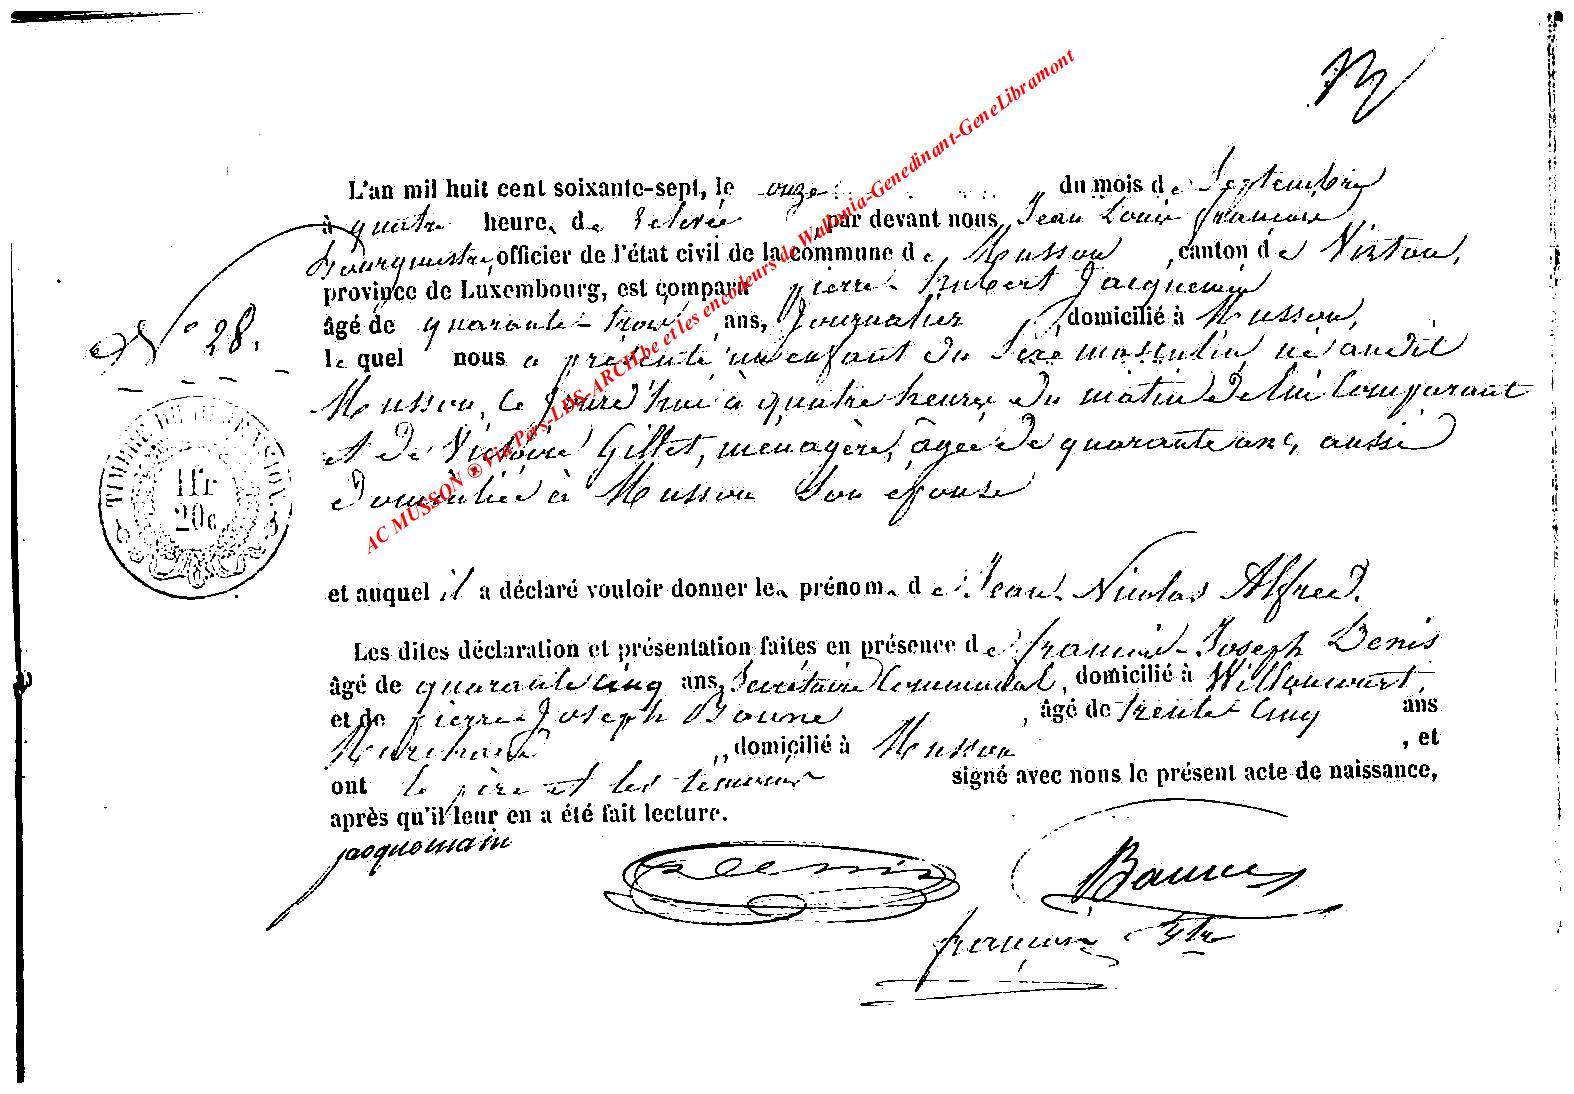 L'an mil huit cent soixante-sept, le onze du mois de Septembre
à quatre heures de relevée par devant nous Jean Louis François
Bourgmestre, officier de l'état civil de la commune de Musson, canton de Virton,
province de Luxembourg, est comparu pierre hubert Jacquemin
âgé de quarante-trois ans, Journalier, domicilié à Musson,
N° 28.
lequel nous a présenté un enfant du Sexe masculin, né audit
Musson, ce jourd'hui à quatre heures du matin de lui Comparant
et de Victoire Gillet, ménagère, âgée de quarante ans, aussi
domiciliée à Musson Son épouse
TIMBRE DE DIMENSION
1 fr
20 c
et auquel il a déclaré vouloir donner les prénoms de Jean Nicolas Alfred.
Les dites déclaration et présentation faites en présence de françois-Joseph Denis
âgé de quarante cinq ans, Secrétaire Communal, domicilié à Willancourt,
et de pierre Joseph Baune, âgé de trente cinq ans
Marchand, domicilié à Musson, et
ont le père et les témoins signé avec nous le présent acte de naissance,
après qu'il leur en a été fait lecture.
jacquemain
Denis
Baune
françois
AC MUSSON ® Via Pers-LDS-ARCH.be et les encodeurs de Wallonia-Genedinant-GeneLibramont